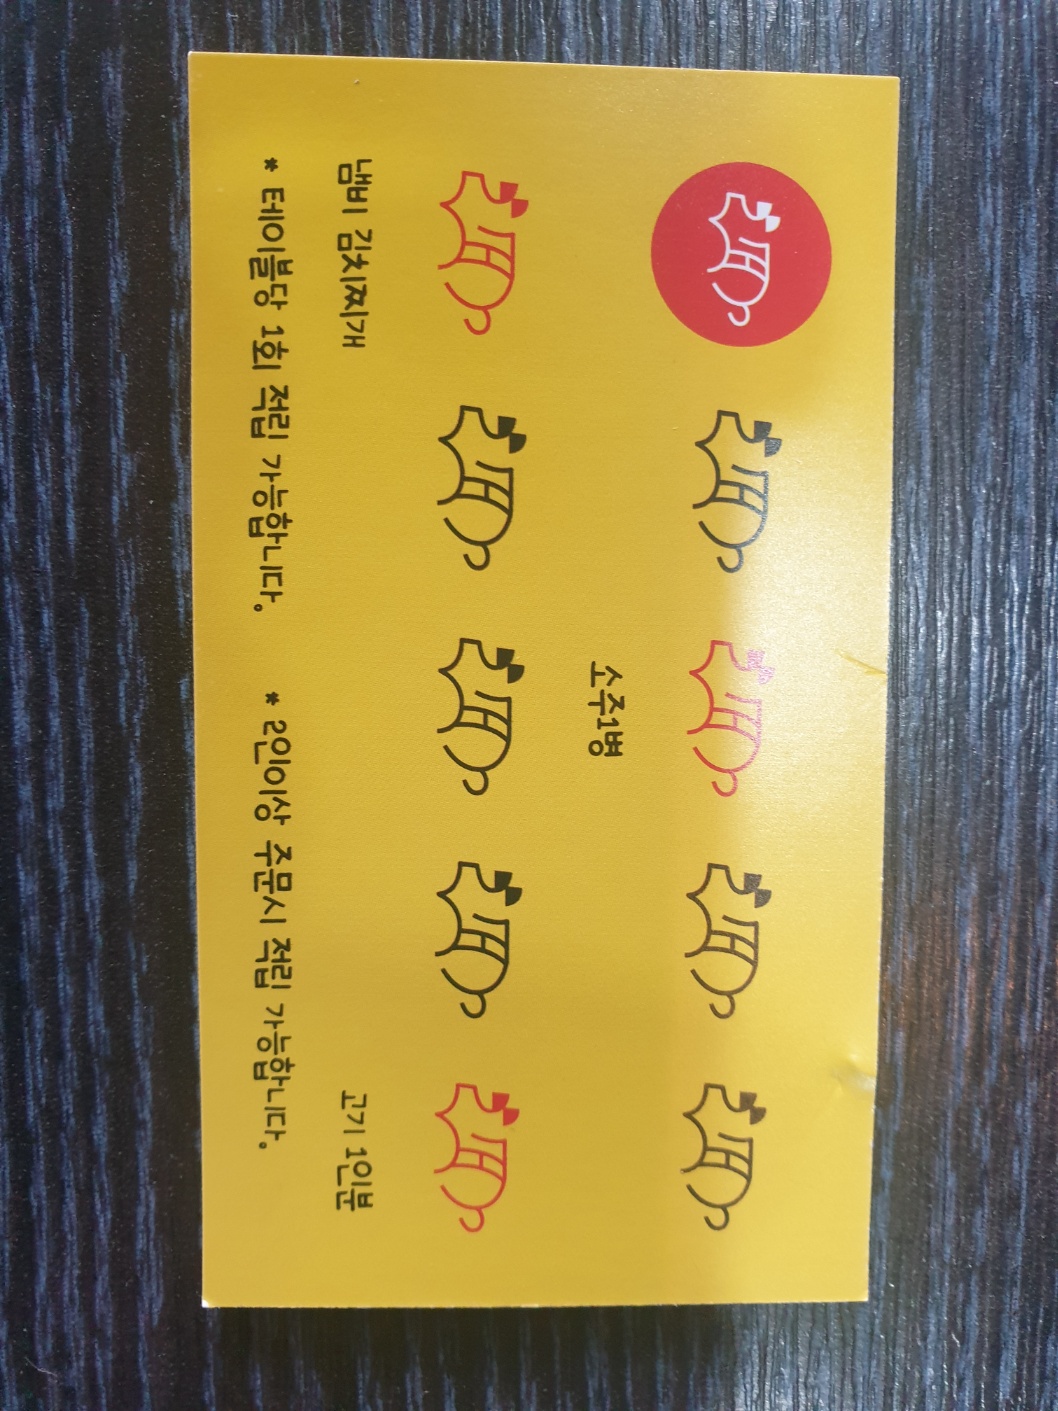 소주1병
냄비 김치찌개
고기 1인분
* 테이블당 1회 적립 가능합니다.
* 2인이상 주문시 적립 가능합니다.